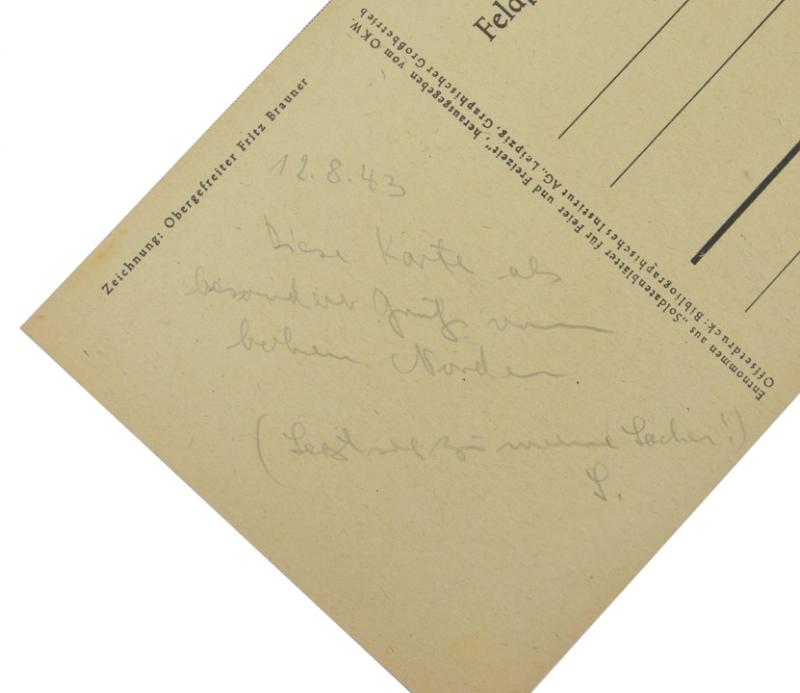 Feldp
Zeichnung: Obergefreiter Fritz Brauner
Entnommen aus „Soldatenblätter für Feier und Freizeit“, herausgegeben vom OKW.
Offsetdruck: Bibliographisches Institut AG., Leipzig, Graphischer Großbetrieb
12.8.43
Diese Karte als
besonderer Gruß vom
hohen Norden
(Legt sie zu meinen Sachen!)
S.